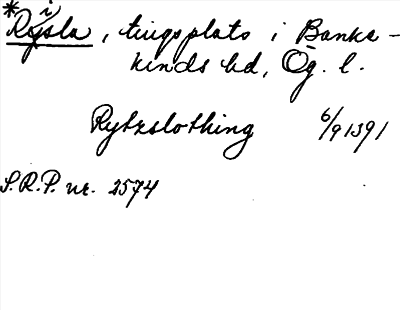 *Rysla, tingsplats i Banke-
i
kinds hd, Ög. l.
Rytzslothing 6/9 1391
S.R.P. nr. 2574